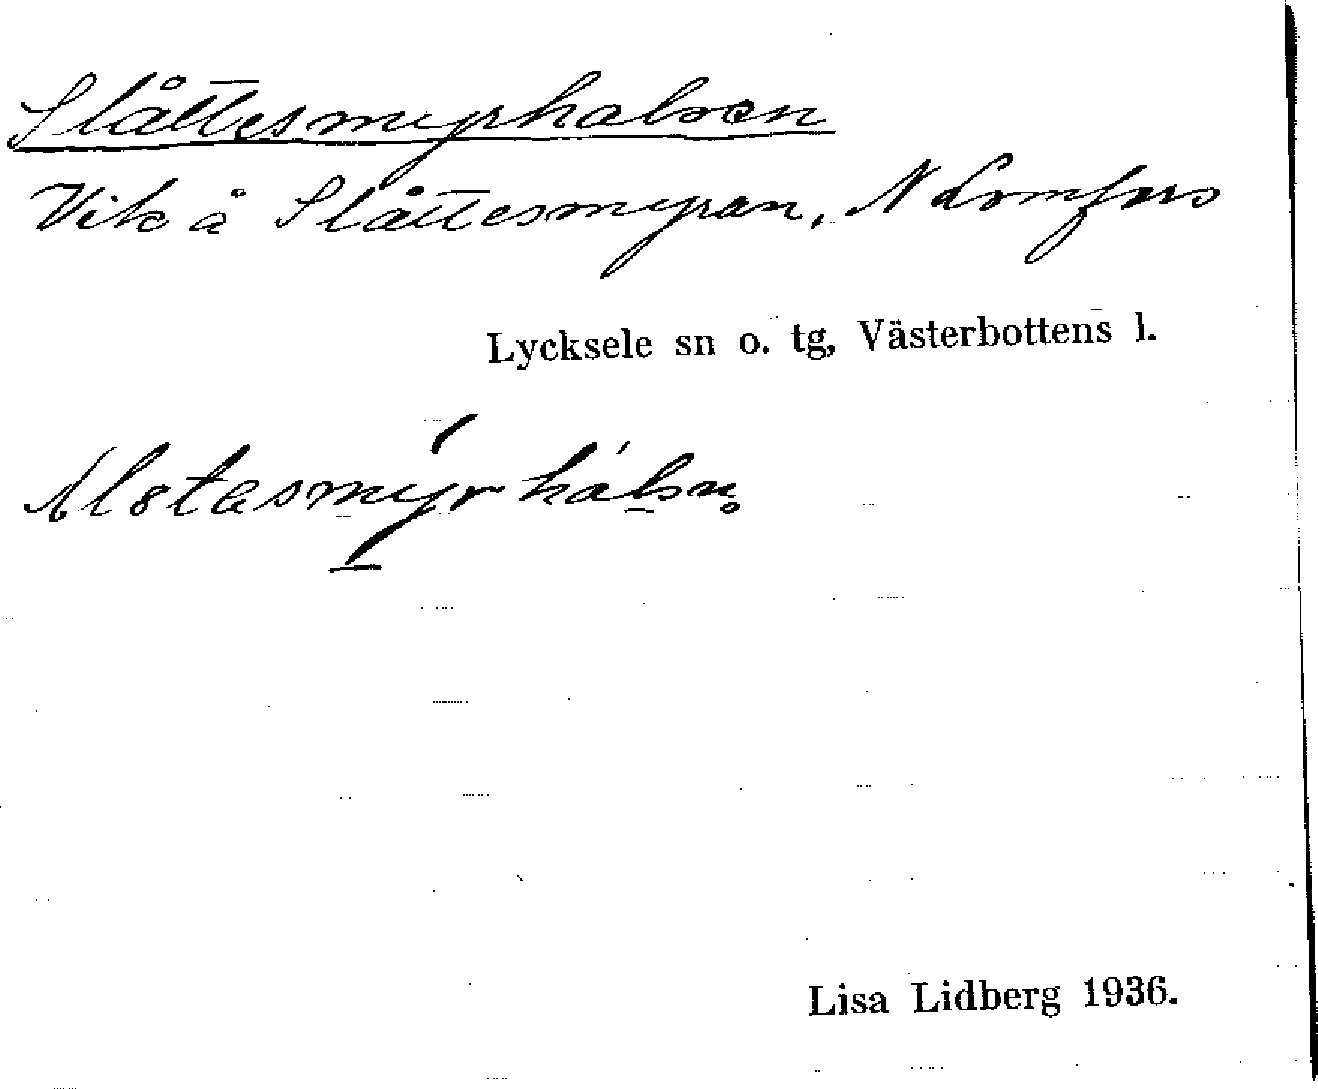 Slåttesmyrhalsen
Vik å Slåttesmyran, N Lomfors
Lycksele sn o. tg, Västerbottens l.
Lisa Lidberg 1936.